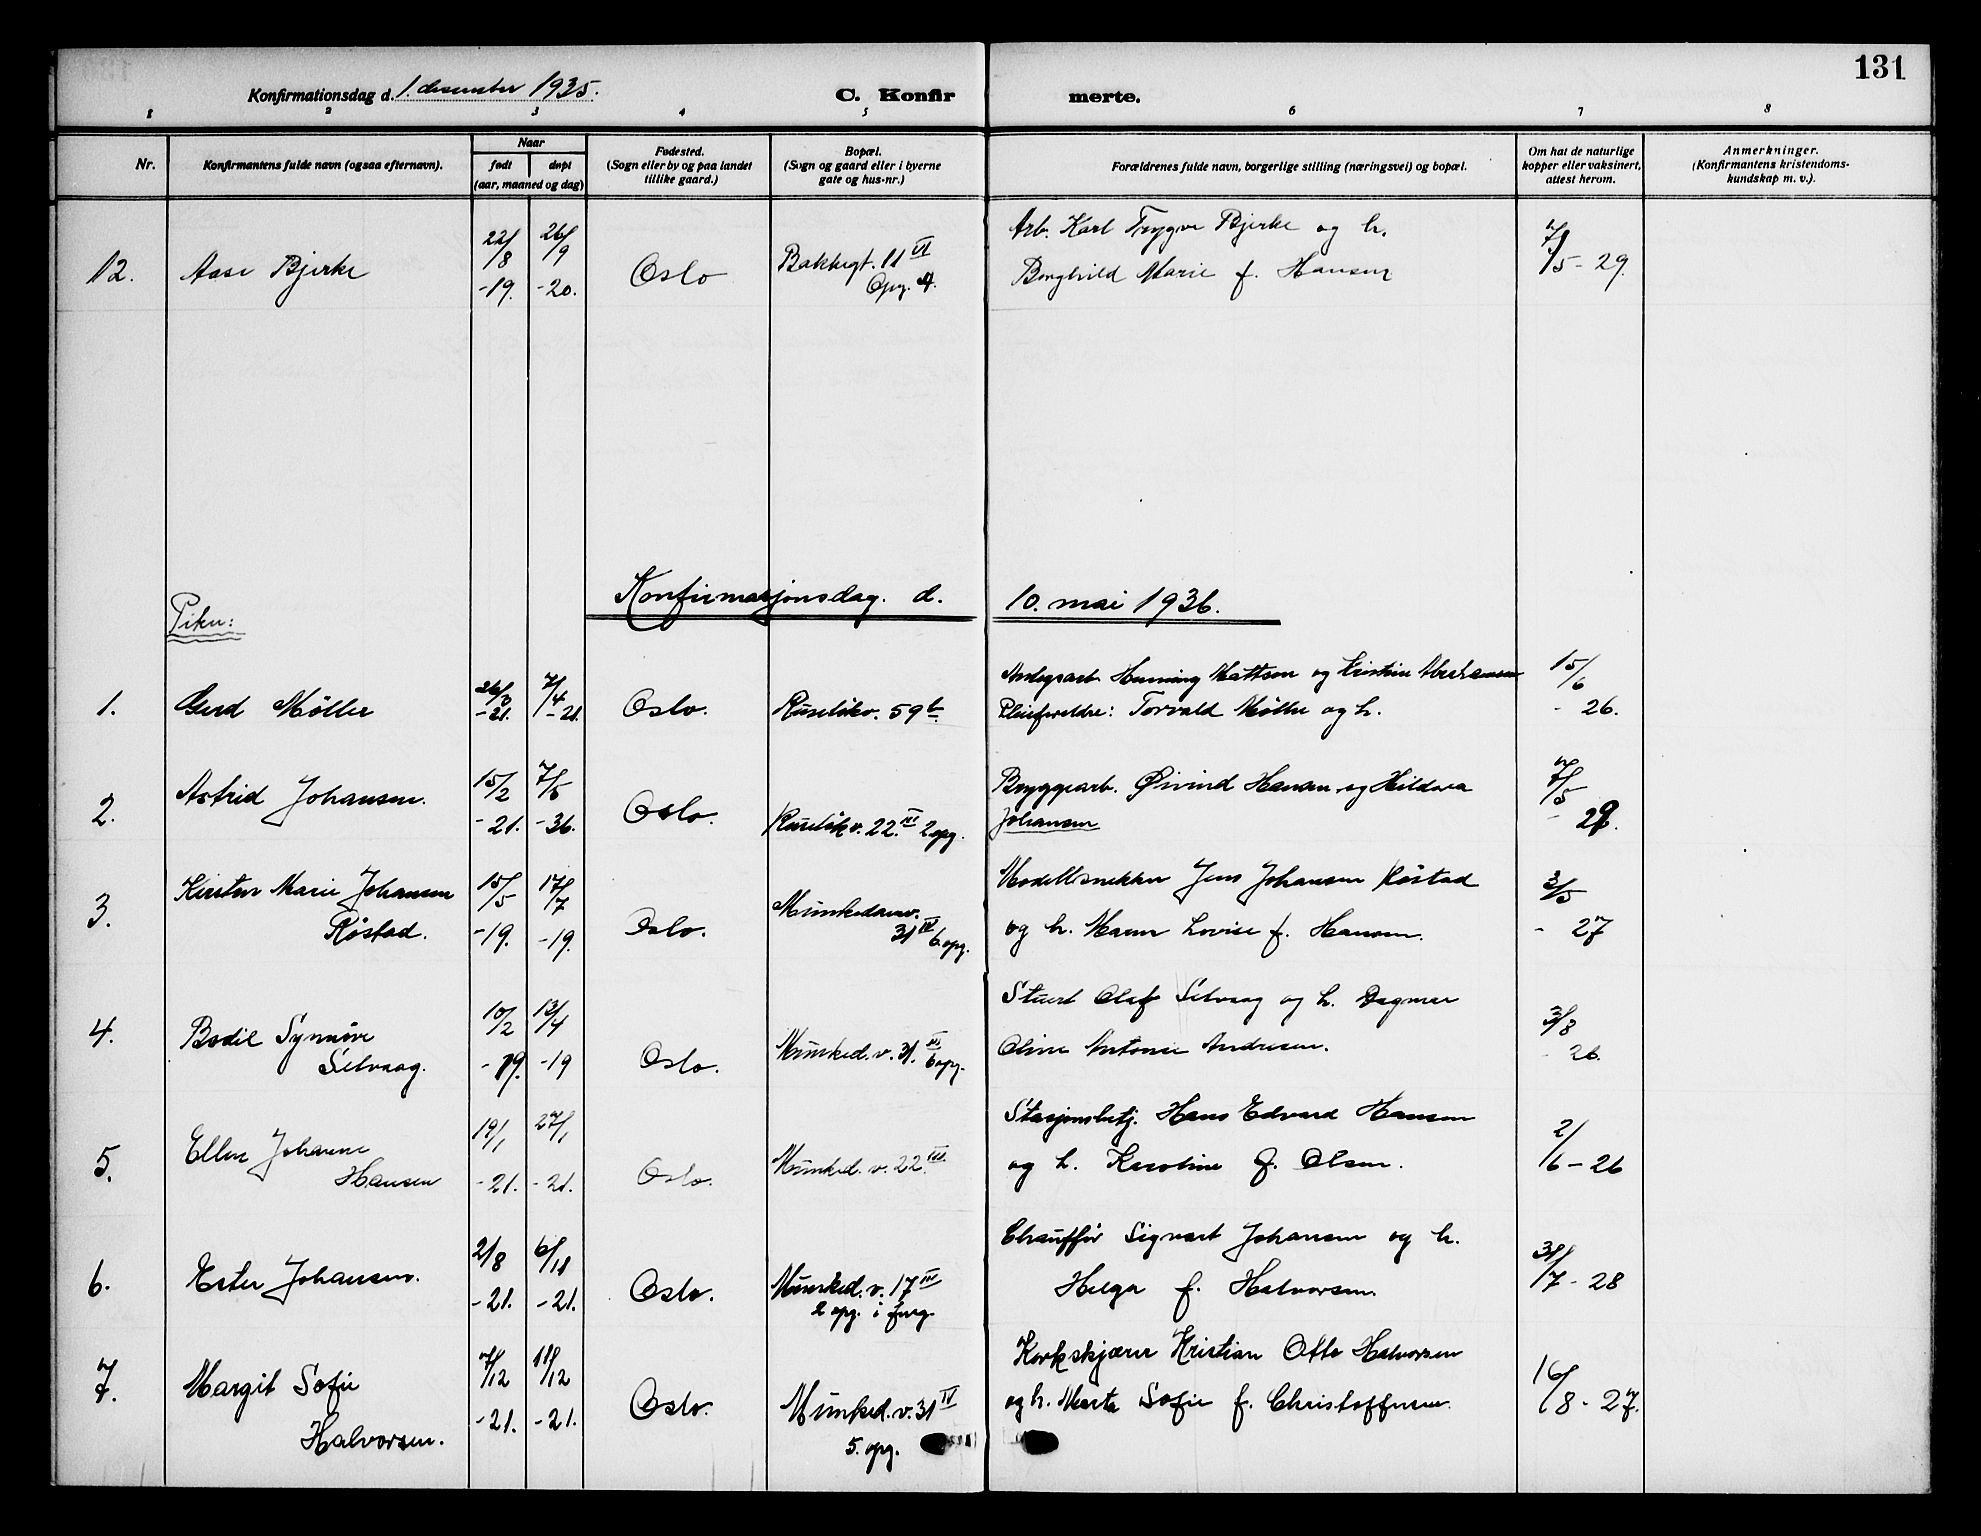 131
Konfirmationsdag d. 1. desember 1935.
C. Konfir merte.
1 2 3 4 5 6 7 8
Nr.
Konfirmantens fulde navn (ogsaa efternavn).
Naar
født døpt
(aar, maaned og dag)
Fødested.
(Sogn eller by og paa landet
tillike gaard.)
Bopæl.
(Sogn og gaard eller i byerne
gate og hus-nr.)
Forældrenes fulde navn, borgerlige stilling (næringsvei) og bopæl.
Om hat de naturlige
kopper eller vaksinert,
attest herom.
Anmerkninger.
(Konfirmantens kristendoms-
kundskap m. v.).
12. Aase Bjerke 22/8 -19. 26/9 -20. Oslo Bakkegt. 11 VI
Opg. 4.
Arb. Karl Trygve Bjerke og h.
Borghild Marie f. Hansen
7/5 - 29.
Konfirmasjonsdag. d. 10. mai 1936.
Piker:
1. Gerd Möller 26/3 -21. 7/4 -21. Oslo. Ruseløkv. 59 b.
Henning Mattson og Kristine Abrahamsen
Pleieforeldre: Torvald Möller og h.
15/6 - 26.
2. Astrid Johansen. 15/2 -21. 7/5 -36. Oslo. Ruseløkv. 22. III 2 opg.
Bryggearb. Øivind Hansen og Hildora
Johansen
7/5 -
3. Kirsten Marie Johansen
Röstad. 15/5 -19. 17/7 -19. Oslo. Munkedamsv.
31 IV 6 opg.
Modellsnekker Jens Johansen Röstad
og h. Maren Lovise f. Hansen.
3/5 - 27
4. Bodil Synnöve
Selvaag. 10/2 -19. 13/4 -19 Oslo. Munked. v. 31. III 6 opg.
Stuert Olaf Selvaag og h. Dagmar
Oline Antonie Andresen.
3/8 - 26.
5. Ellen Johanne
Hansen 19/1 -21. 27/1 -21. Oslo. Munked. v. 22. III
Stasjonsbetj. Hans Edvard Hansen
og h. Karoline f. Olsen.
2/6 - 26
6. Ester Johansen. 21/8 -21. 6/11 -21. Oslo. Munked. v. 17 III
2 opg. i furg.
Chaufför Sigvart Johansen og h.
Helga f. Halvorsen.
31/7 - 28
7. Margit Sofie
Halvorsen. 7/12 -21. 11/12 -21. Oslo. Munked. v. 31 IV
5. opg.
Korkskjærer Kristian Otto Halvorsen
og h. Marta Sofie f. Christoffersen.
16/8 - 27.